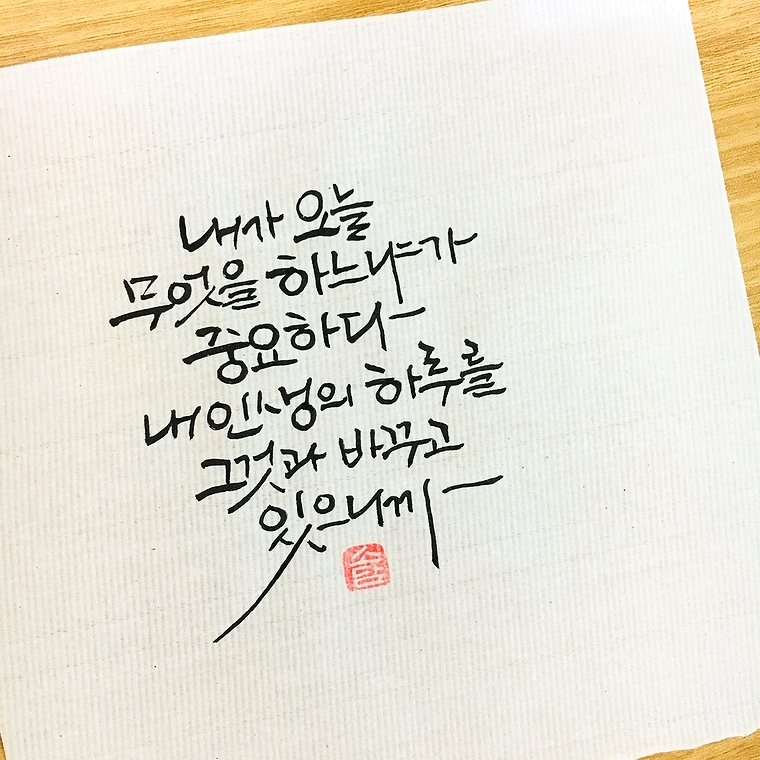 내가 오늘
무엇을 하느냐가
중요하다
내 인생의 하루를
그것과 바꾸고
있으니까